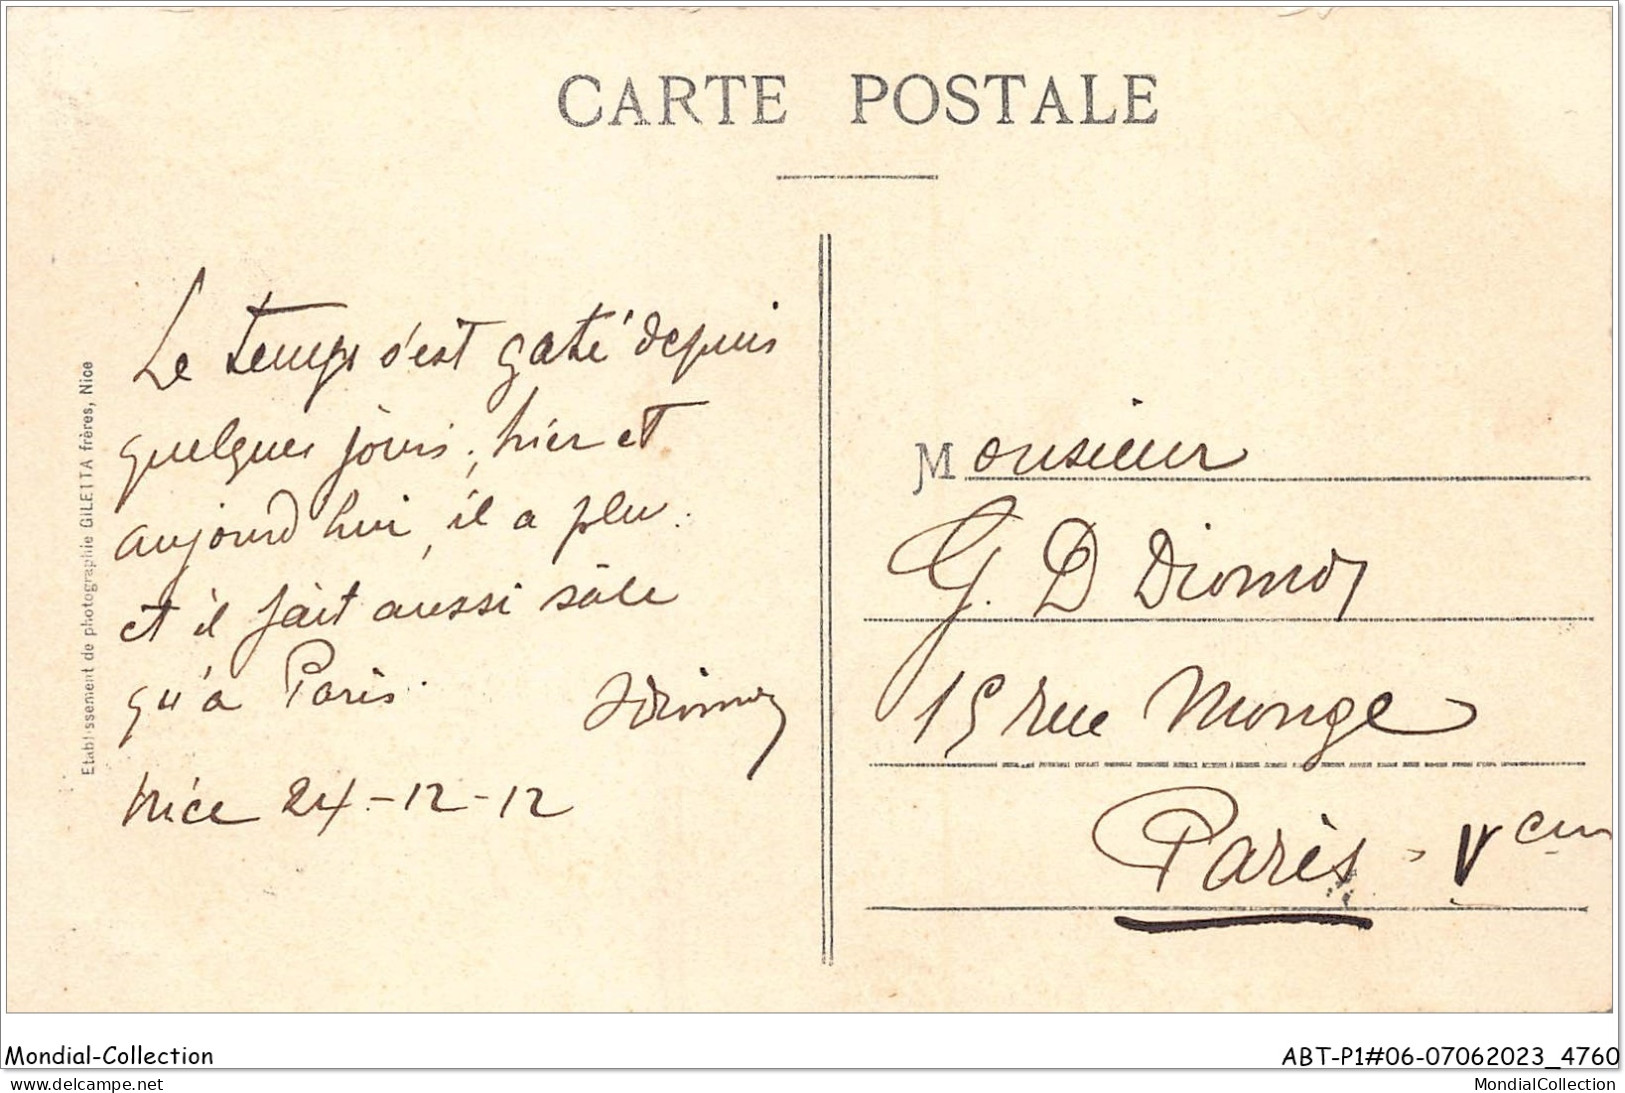 CARTE POSTALE
Le temps s'est gaté depuis
quelques jours; hier et
aujourd'hui, il a plu.
et il fait aussi sâle
qu'à Paris.
Nice 24-12-12
Etablissement de photographie GILETTA frères, Nice
Monsieur
G. D
15 rue Monge
Paris - Vem
Mondial-Collection
ABT-P1#06-07062023_4760
www.delcampe.net
MondialCollection